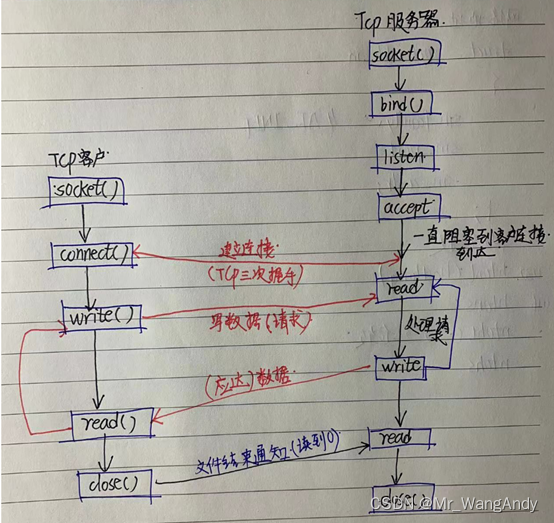 Tcp服务器
socket()
bind()
listen
accept
一直阻塞到客户连接
到达
TCP客户
socket()
connect()
建立连接
(TCP三次握手)
read
write()
写数据(请求)
处理请
求
write
(应达)数据
read()
文件结束通知(读到0)
read
close()
close()
CSDN @Mr_WangAndy